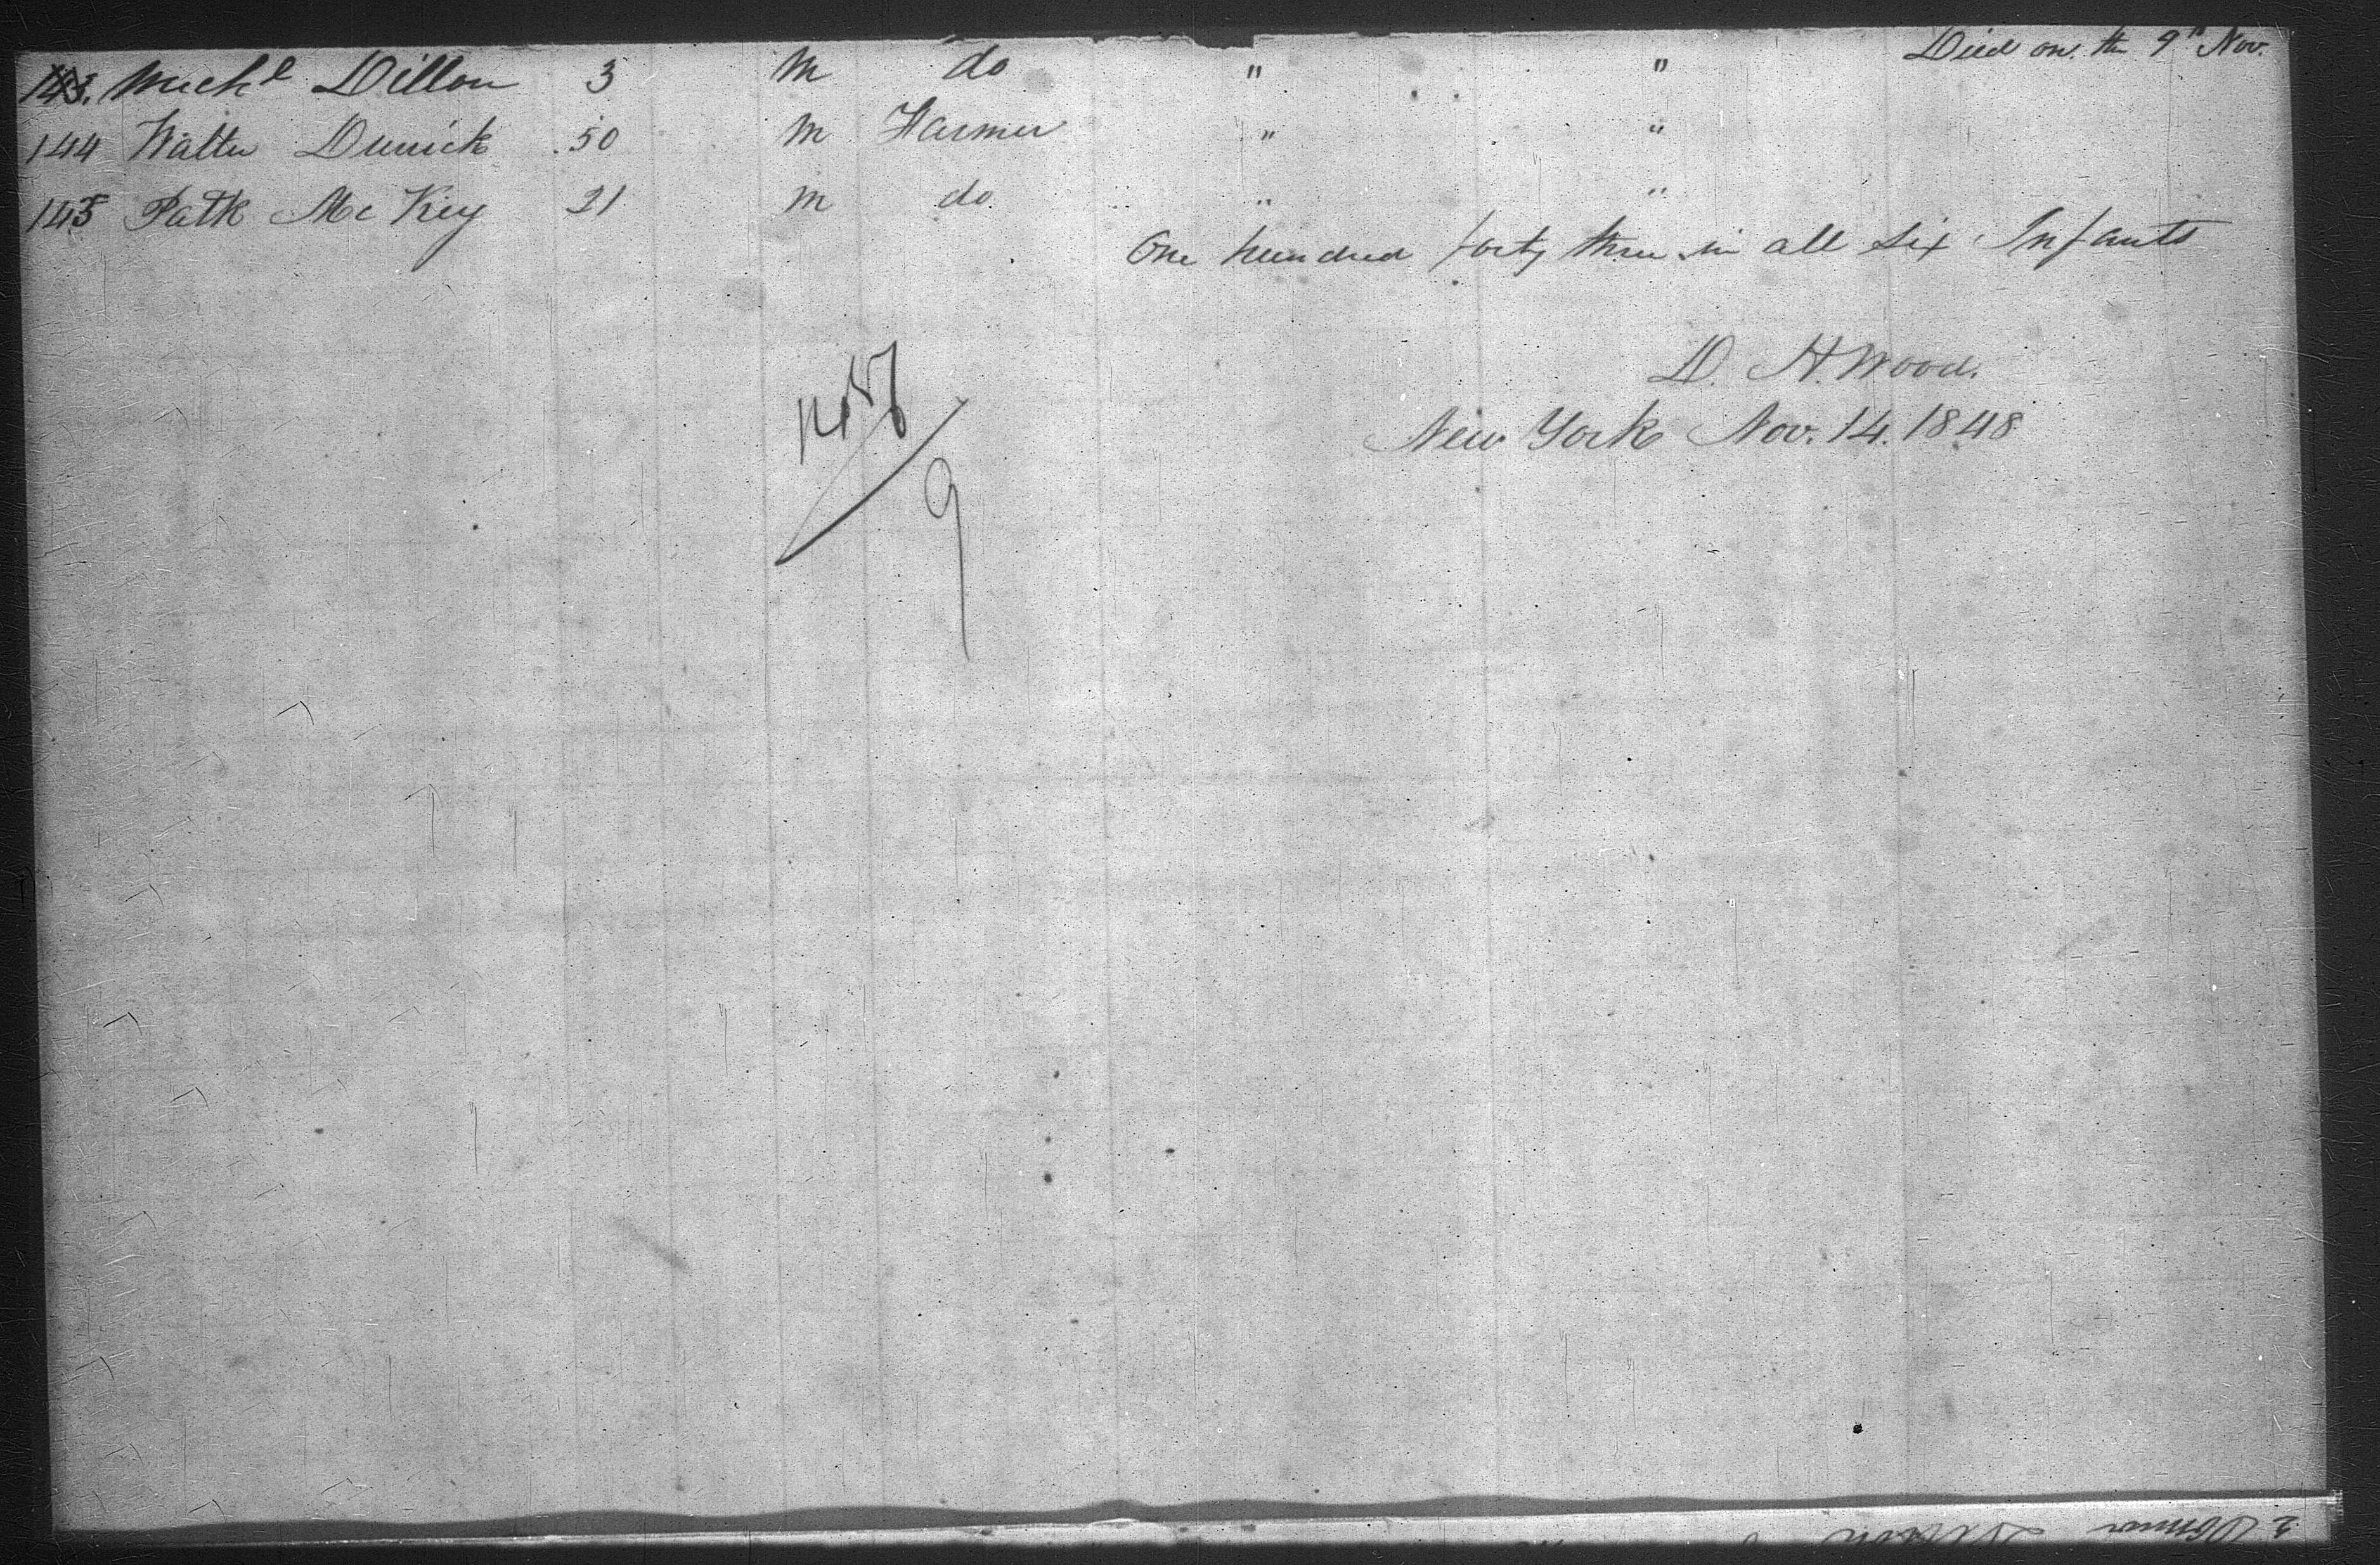 143. Mich<sup>l</sup> Dillon 3 M do " " Died on the 9<sup>th</sup> Nov.
144 Walter Dunick 50 M Farmer " "
145 Patk McKey 21 M do " "
One hundred forty three in all six Infants
D. H. Wood.
New York Nov. 14. 1848
9